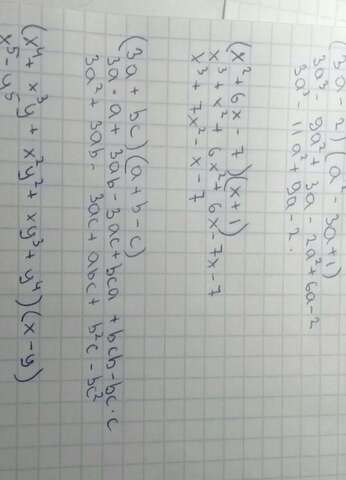 (3a - 2)(a² - 3a + 1)
3a³ - 9a² + 3a - 2a² + 6a - 2
3a³ - 11a² + 9a - 2.
(x² + 6x - 7)(x + 1)
x³ + x² + 6x² + 6x - 7x - 7
x³ + 7x² - x - 7
(3a + bc)(a + b - c)
3a·a + 3ab - 3ac + bca + bcb - bc·c
3a² + 3ab - 3ac + abc + b²c - bc²
(x⁴ + x³y + x²y² + xy³ + y⁴)(x - y)
x⁵ - y⁵